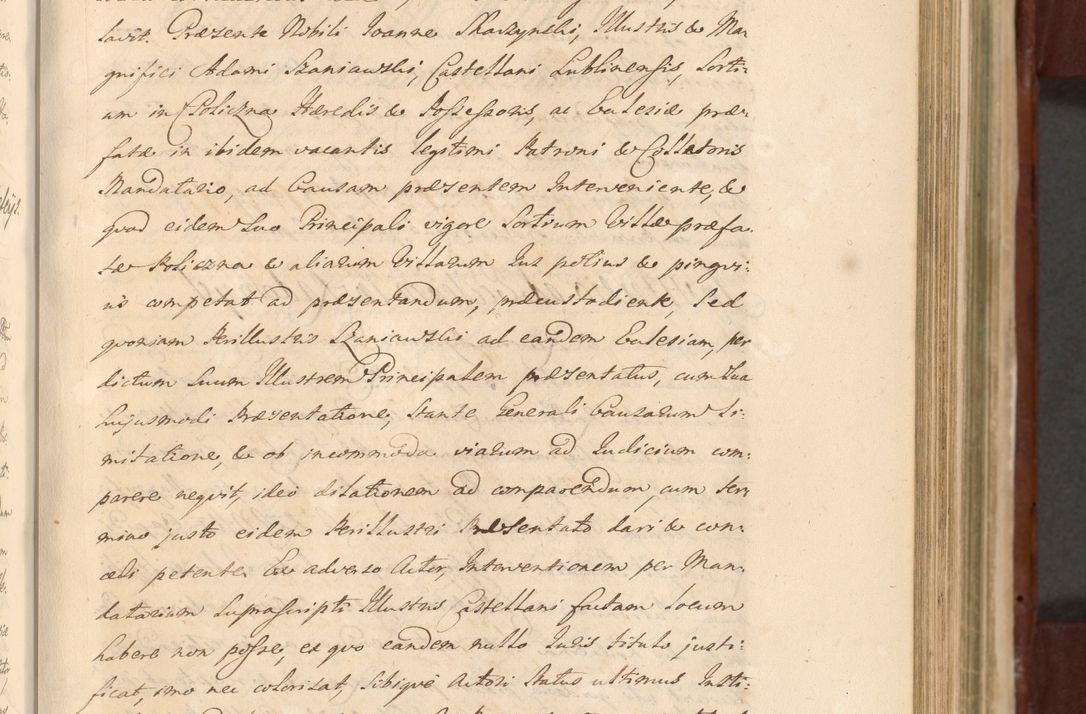 savit. Præsente Nobili Joanne Skarzynski, Illustris & Ma:
gnifici Adami Szaniawski, Castellani Lublinensis, Sorti:
um in Policzna Hæredis & Possessoris, ac Ecclesiæ præ:
fatæ in ibidem vacantis legitimi Patroni & Collatoris
Mandatario, ad Causam præsentem Interveniente, &
quod eidem suo Principali vigore Sortium Villæ præfa:
tæ Policzna & aliarum Villarum Jus potius & pingvi:
us competat ad præsentandum, præcustodiente, Sed
quoniam Perillustris Szaniawski ad eandem Ecclesiam, per
dictum suum Illustrem Principalem præsentatus, cum sua
hujusmodi Præsentatione, stante Generali Causarum Li:
mitatione, & ob incommoda viarum ad Judicium com:
parere nequit, ideo dilationem ad comparendum, cum ter:
mino justo eidem Perillustri Præsentato dari & con:
cedi petente. Ex adverso Actor, Interventionem per Man:
datarium suprascripti Illustris Castellani factam locum
habere non posse, ex quo eandem nullo Juris titulo justi:
ficat, imo nec colorisat, sibique Actori Status ultimus Insti: